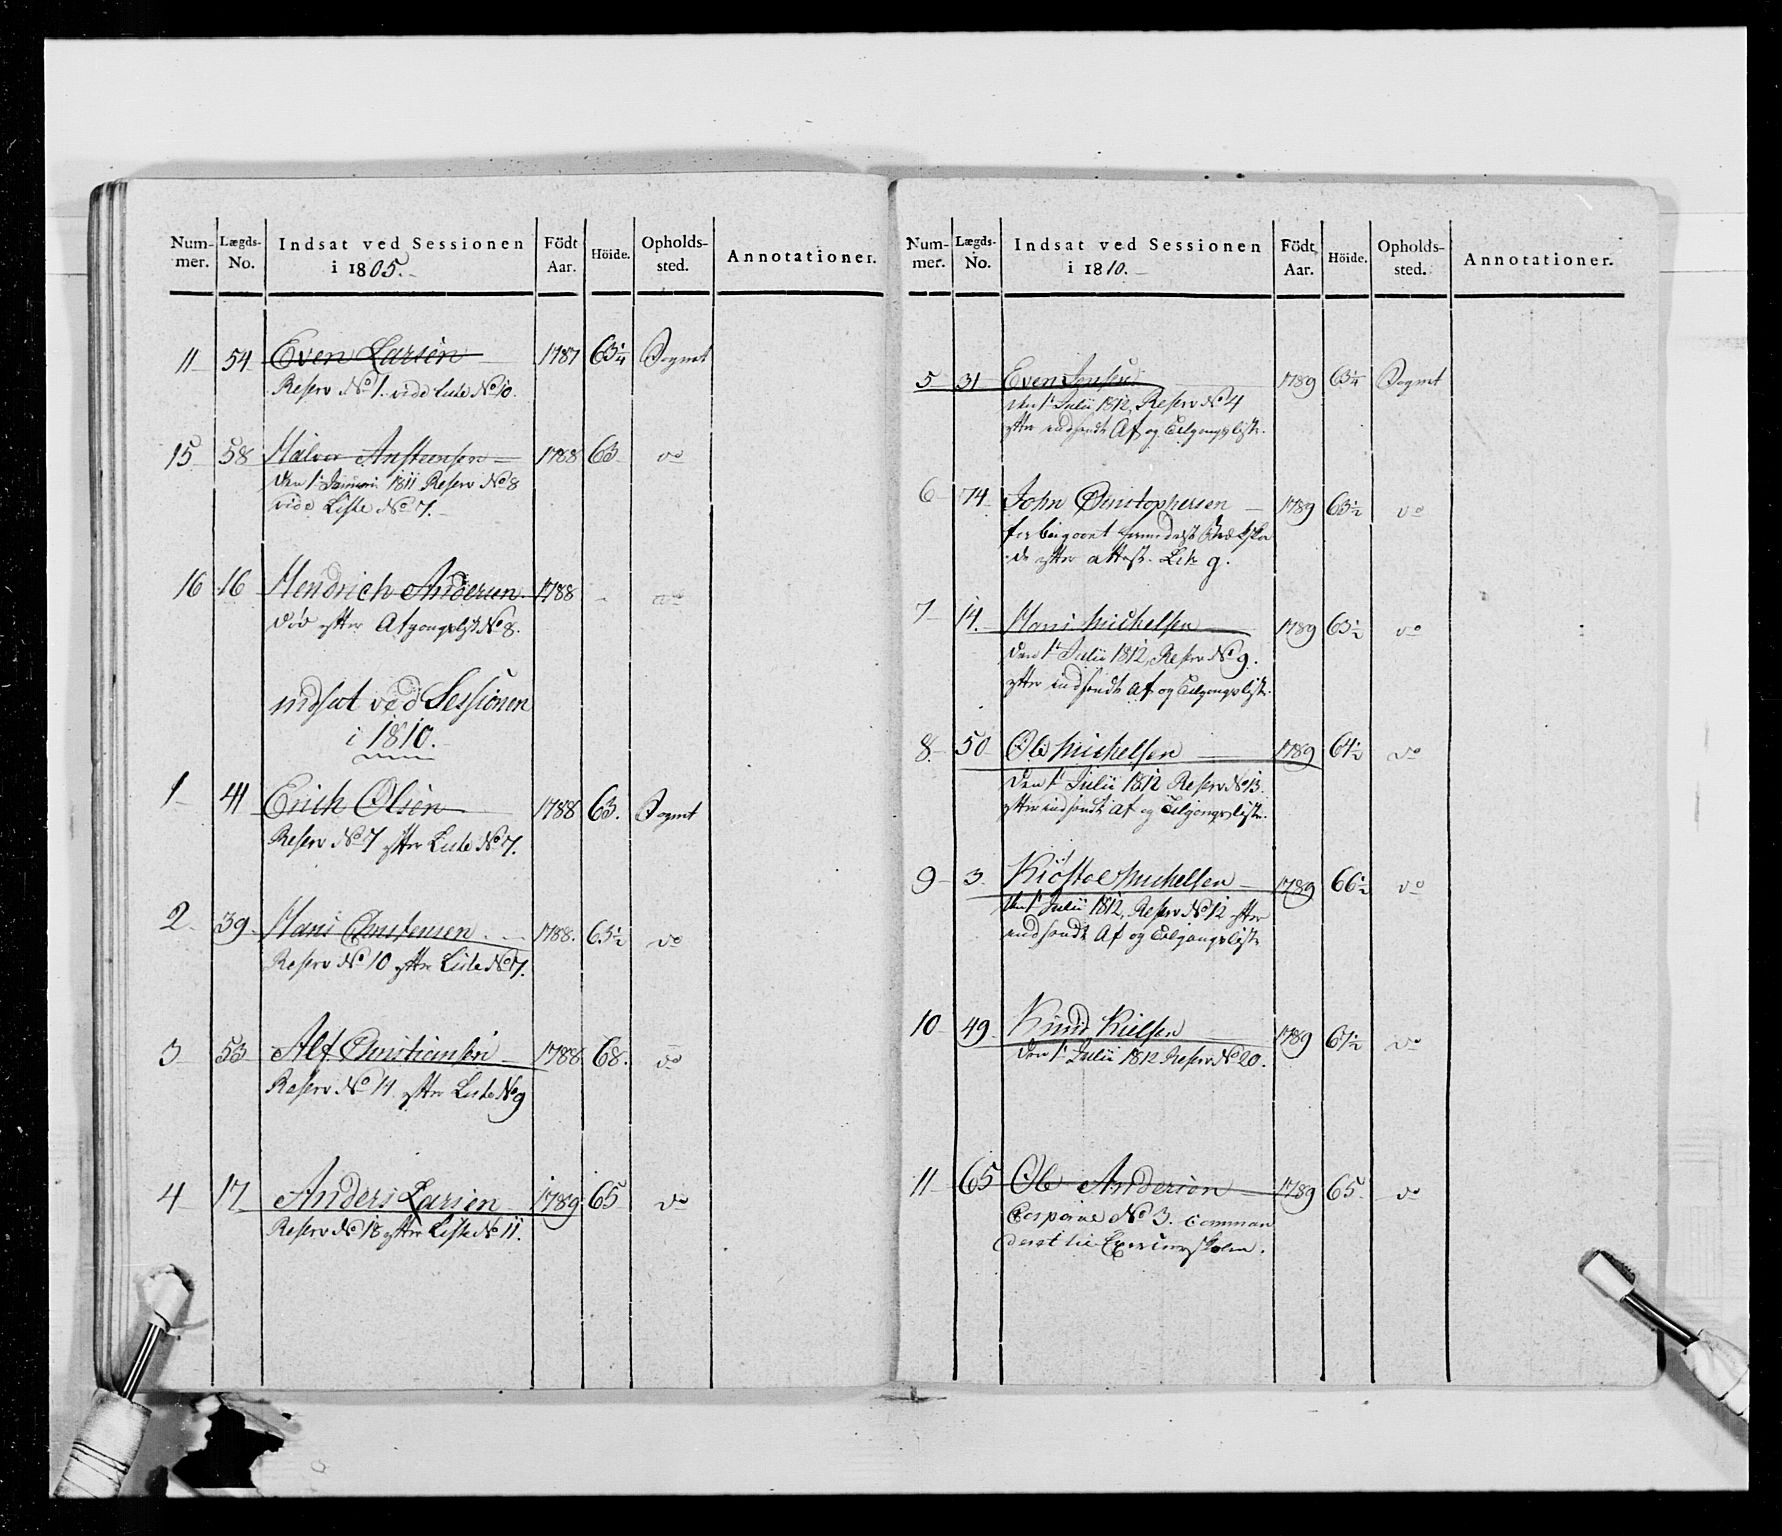 Num- Lægds- Indsat ved Sessionen Födt Höide. Opholds- Annotationer.
mer. No. i 1805. Aar. sted.
11 54 Even Larsen 1787 63 1/4 Sognet
Reserv No 1. vide Liste No 10.
15 58 Halvor Anstensen 1788 63 do
den 1t Januari 1811 Reserv No 8
vide Liste No 7.
16 16 Hendrich Andersen 1788 - do
död efter Afgangslist No 8.
indsat ved Sessionen
i 1810.
1 41 Erich Olsen 1788 63. Sognet
Reserv No 7 efter Liste No 7.
2 39 Hans Christensen 1788. 63 1/2 do
Reserv No 10 efter Liste No 7.
3 53 Alf Christiansen 1788 68. do
Reserv No 14 efter Liste No 9
4 17 Anders Larsen 1789 65 do
Reserv No 18 efter Liste No 11.
Num- Lægds- Indsat ved Sessionen Födt Höide. Opholds- Annotationer.
mer. No. i 1810. Aar. sted.
5 31 Even Jensen 1789 63 1/4 Sognet
den 1t Julii 1812, Reserv No 4
efter indsendt Af og Tilgangsliste.
6 74 John Christophersen 1789 63 1/2 do
forbigaaet formedelst
efter attest Litr g.
7 14. Hans Michelsen 1789 63 1/2 do
den 1t Julii 1812, Reserv No 9.
efter indsendt Af og Tilgangsliste.
8. 50 Ole Michelsen 1789 64 1/2 do
den 1t Julii 1812 Reserv No 13.
efter indsendt Af og Tilgangsliste.
9 3 Michelsen 1789 66 1/2 do
den 1t Julii 1812, Reserv No 12 efter
indsendt Af og Tilgangsliste
10 49 Knud Nielsen 1789 67 1/2 do
den 1t Julii 1812 Reserv No 20.
11 65 Ole Andersen 1789 65 do
Corporal No 3. comman
deret til Exerceerskolen.